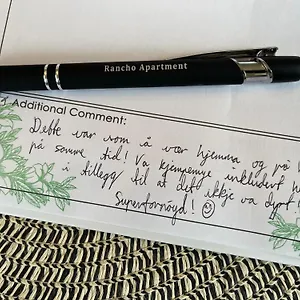 Rancho Apartment
Additional Comment:
Dette var som å vær hjemma og på
på samme tid! Va kjempemye inkludert
i tillegg til at det ikkje va dyrt
Superfornøyd! ☺